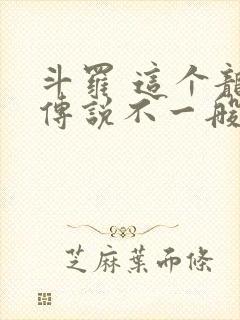 斗羅 這个龍
傳說不一般
芝麻葉而條